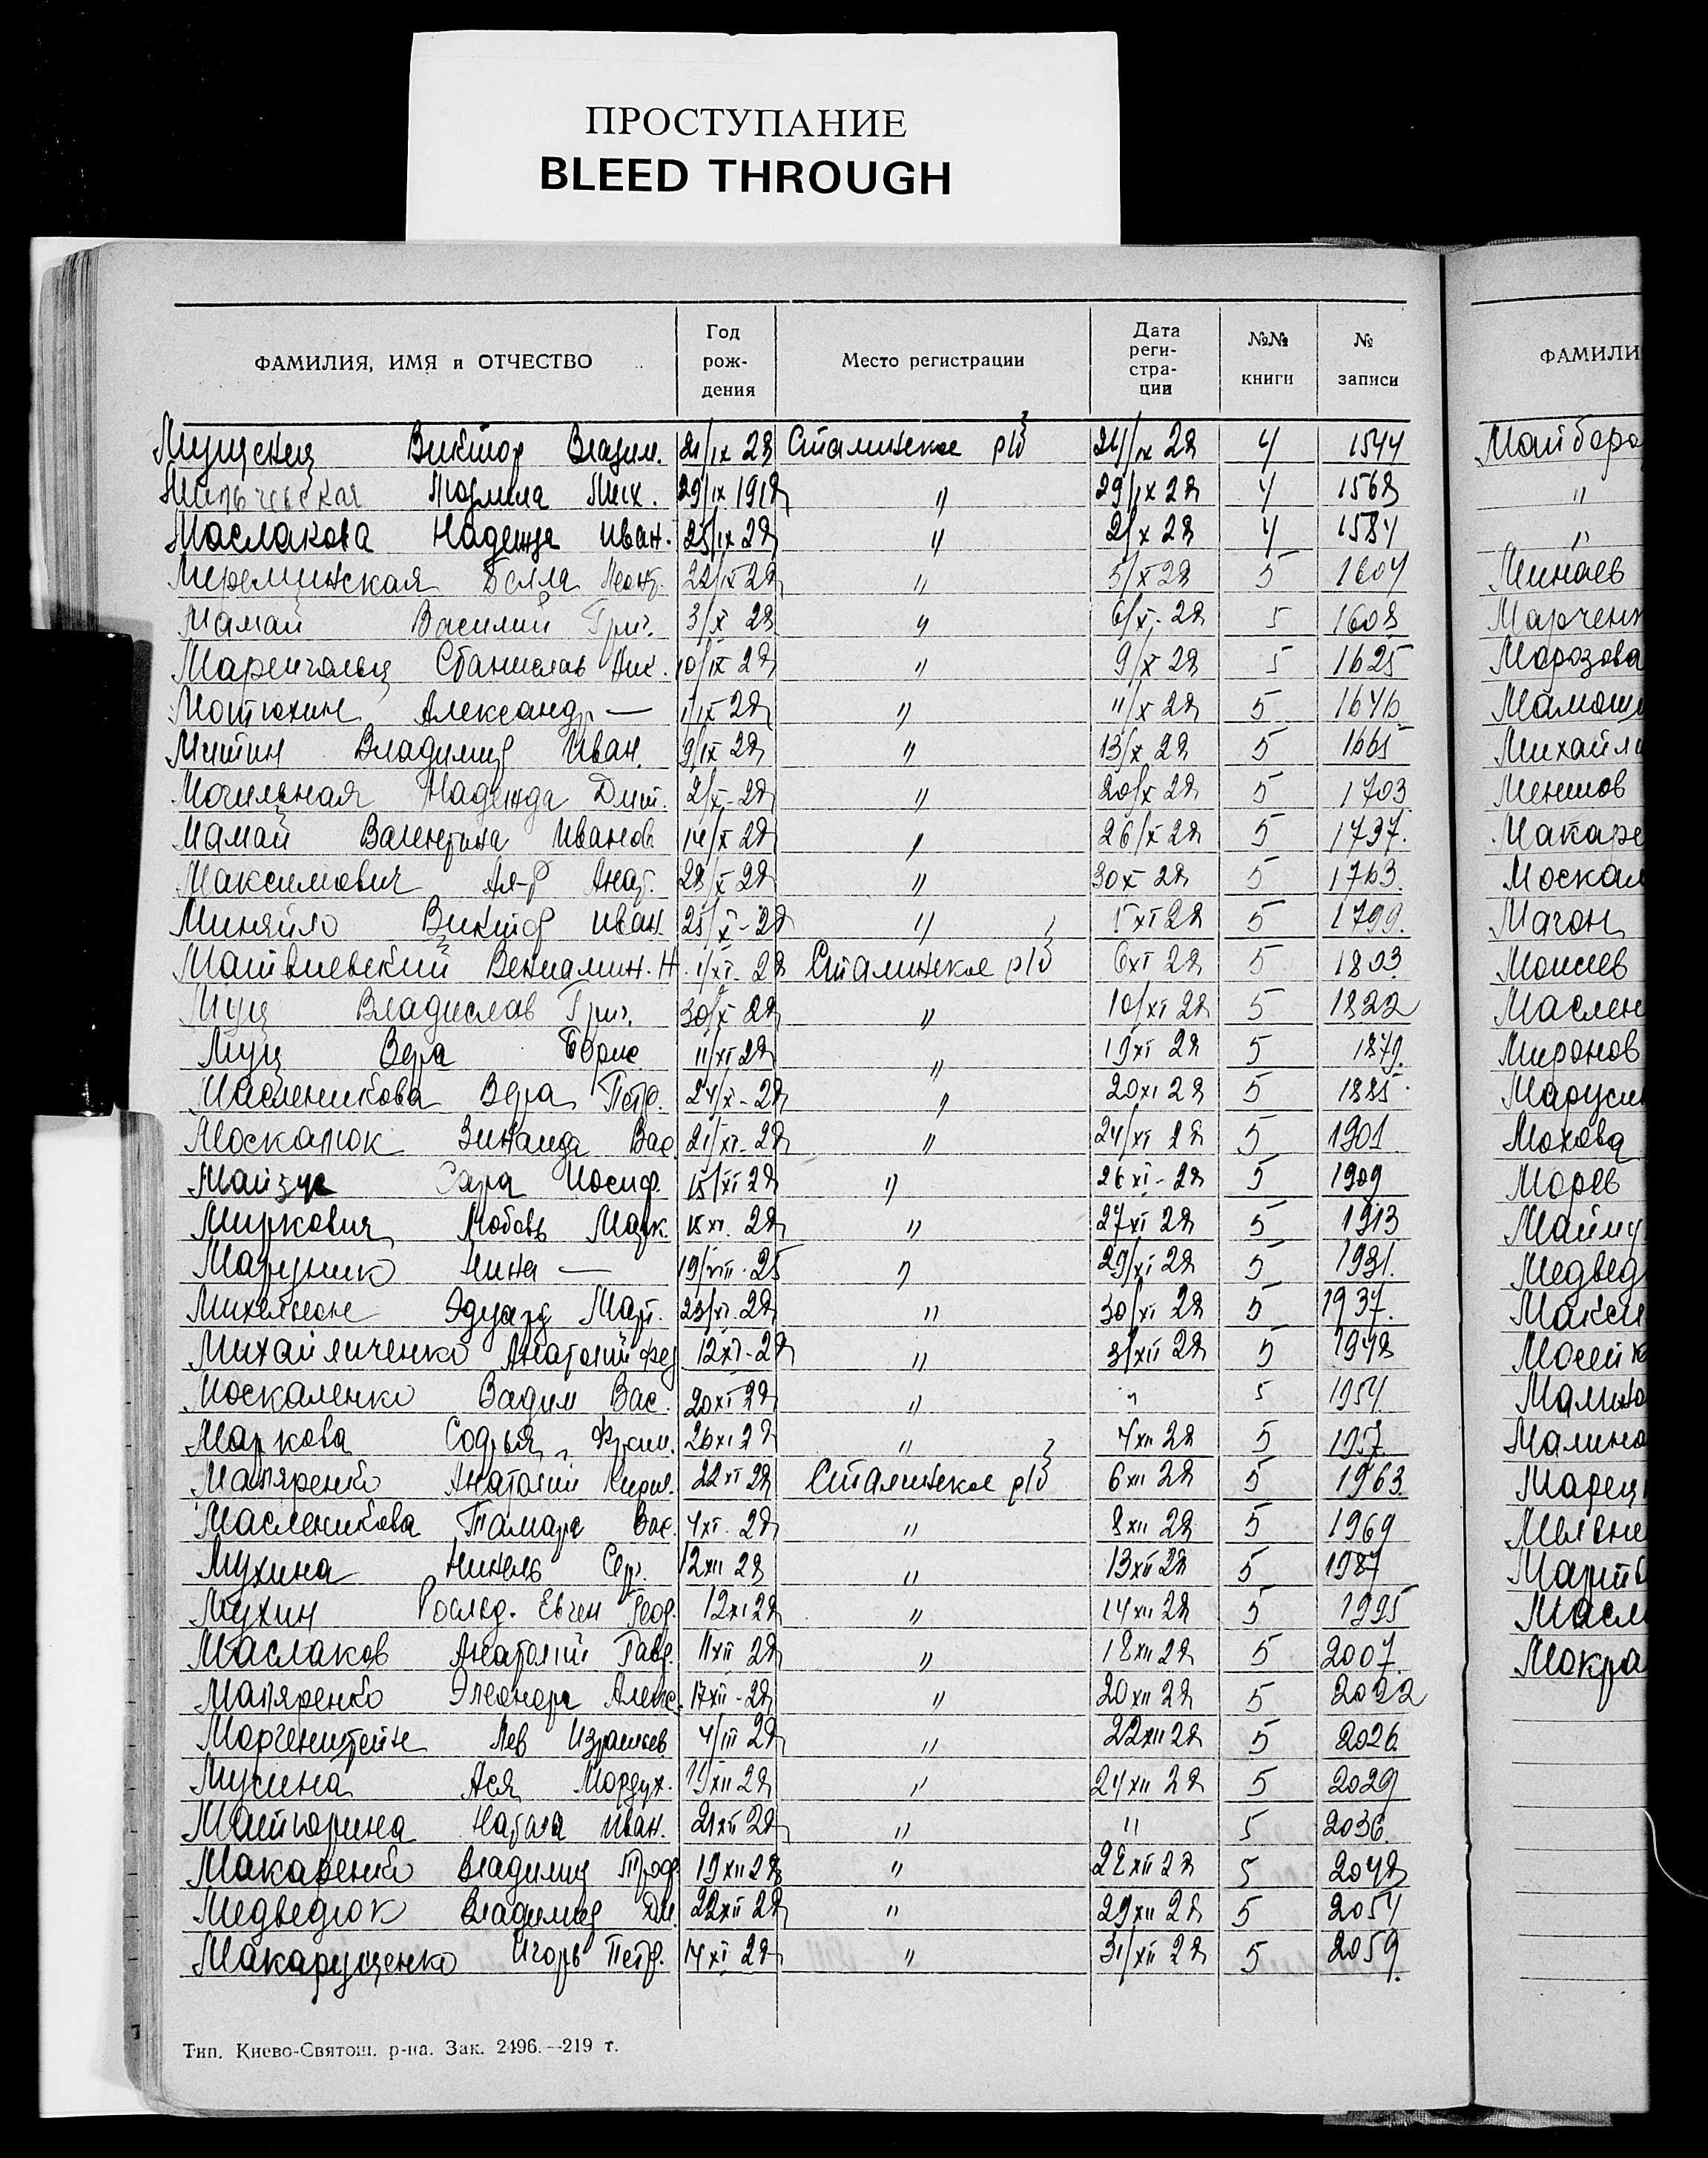 ПРОСТУПАНИЕ
BLEED THROUGH
ФАМИЛИЯ, ИМЯ и ОТЧЕСТВО Год рождения Место регистрации Дата регистрации №№ книги № записи ФАМИЛИ
Мущский Виктор Владим. 21/IX 28 Сталинское р/б 24/IX 28 4 1544 Майборо
Мильчевская Людмила Мих. 29/IX 1928 " 29/IX 28 4 1568 "
Маслакова Надежда Иван. 25/IX 28 " 2/X 28 4 1584 "
Мереминская Белла Леонт. 22/IX 28 " 5/X 28 5 1604 Минаев
Мамай Василий Григ. 3/X 28 " 6/X-28 5 1608 Марченк
Маренгольц Станислав Ник. 10/IX 28 " 9/X 28 5 1625 Морозова
Мотюхин Александр — 1/IX 28 " 11/X 28 5 1646 Мамош
Митин Владимир Иван. 9/IX 28 " 13/X 28 5 1665 Михайл
Могильная Надежда Дмит. 2/X-28 " 20/X 28 5 1703 Меншов
Мамай Валентина Иванов. 14/X 28 " 26/X 28 5 1737. Макаре
Максимович Ал-р Анат. 28/X 28 " 30 X 28 5 1763. Москал
Миняйло Виктор Иван. 25/X-28 " 5 XI 28 5 1799. Магон
Матвиевский Вениамин. Н. 1/XI-28 Сталинское р/б 6 XI 28 5 1803 Моисеев
Муц Владислав Григ. 30/X 28 " 10/XI 28 5 1822 Маслен
Муц Вера Борис 11/XI 28 " 19 XI 28 5 1879. Миронов
Масленикова Вера Петр. 24/X-28 " 20 XI 28 5 1885. Марусин
Москалюк Зинаида Вас. 21/XI-28 " 24/XI 28 5 1901 Мохова
Майзус Сара Иосиф. 15/XI 28 " 26 XI-28 5 1909 Морев
Миркович Любовь Марк. 18 XI. 28 " 27 XI 28 5 1913 Майму
Марущико Нина — 19/VIII-25 " 29/XI 28 5 1931. Медвед
Михельсон Эдуард Март. 23/XI. 28 " 30/XI 28 5 1937. Макси
Михайличенко Анатолий Фед 12 XI-28 " 3/XII 28 5 1948 Мосейк
Москаленко Вадим Вас. 20 XI 28 " " 5 1954 Малино
Маркова Софья Фроим. 26 XI 28 " 4 XII 28 5 1957 Малино
Маляренко Анатолий Кирил. 22 XI 28 Сталинское р/б 6 XII 28 5 1963 Марец
Масленикова Тамара Вас. 4 XI. 28 " 8 XII 28 5 1969 Мелене
Мухина Нинель Серг. 12 XII 28 " 13 XII 28 5 1987 Март
Мухин Рослед. Евген Геор. 12 XI 28 " 14 XII 28 5 1995 Масл
Маслаков Анатолий Гавр. 11 XII 28 " 18 XII 28 5 2007. Мокра
Маляренко Элеонора Алекс. 17 XII-28 " 20 XII 28 5 2022
Моргенштейн Лев Израилев 4/III 28 " 22 XII 28 5 2026
Мусина Ася Мордух. 19 XII 28 " 24 XII 28 5 2029
Матюрина Натала Иван. 21 XII 28 " " 5 2036.
Макаренко Владимир Троф. 19 XII 28 " 28 XII 28 5 2048
Медведюк Владимир Дм. 22 XII 28 " 29 XII 28 5 2054
Макарущенко Игорь Петр. 14 XI 28 " 31/XII 28 5 2059.
Тип. Киево-Святош. р-на. Зак. 2496.—219 т.